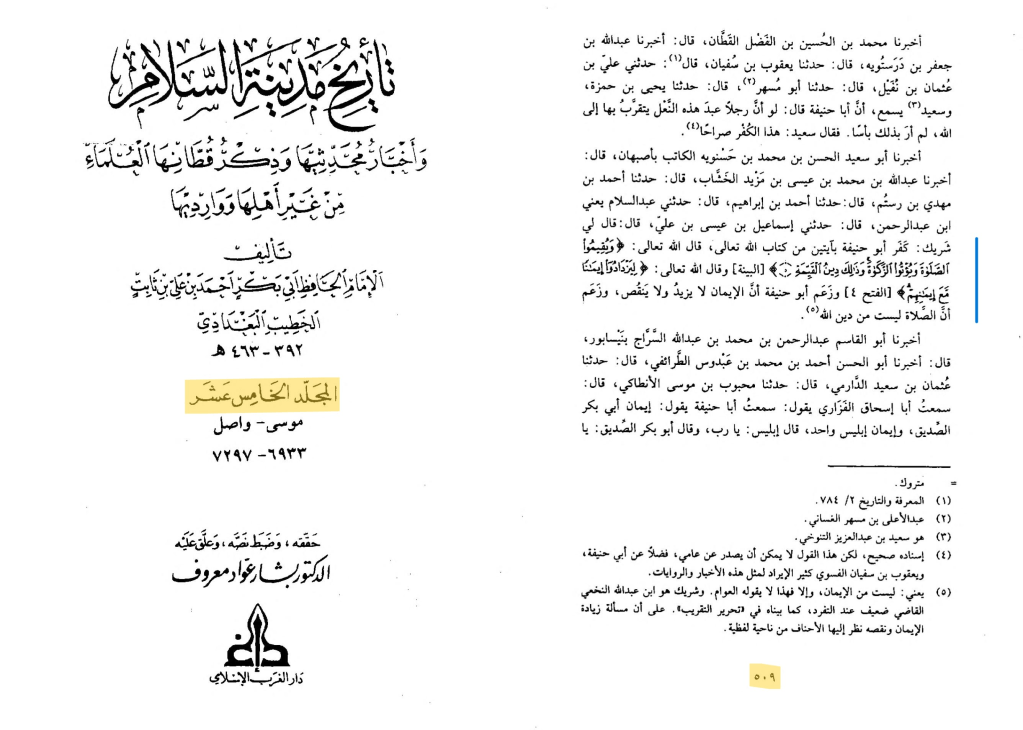 تأريخ مدينة السلام
وأخبار محدثيها وذكر قطانها العلماء
من غير أهلها ووارديها
تأليف
الإمام الحافظ أبي بكر أحمد بن علي بن ثابت
الخطيب البغدادي
٣٩٢ - ٤٦٣ هـ
المجلد الخامس عشر
موسى - واصل
٦٩٣٣ - ٧٢٩٧
حققه، وضبط نصه، وعلق عليه
الدكتور بشار عواد معروف
دار الغرب الإسلامي
أخبرنا محمد بن الحُسين بن الفَضْل القَطَّان، قال: أخبرنا عبدالله بن
جعفر بن دَرَستُويه، قال: حدثنا يعقوب بن سُفيان، قال(١): حدثني عليّ بن
عُثمان بن نُفَيْل، قال: حدثنا أبو مُسْهر(٢)، قال: حدثنا يحيى بن حمزة،
وسعيد(٣) يسمع، أنَّ أبا حنيفة قال: لو أنَّ رجلاً عبدَ هذه النَّعْل يتقرَّبُ بها إلى
الله، لم أرَ بذلك بأسًا. فقال سعيد: هذا الكُفْر صراحًا(٤).
أخبرنا أبو سعيد الحسن بن محمد بن حَسْنويه الكاتب بأصبهان، قال:
أخبرنا عبدالله بن محمد بن عيسى بن مَزْيد الخَشَّاب، قال: حدثنا أحمد بن
مهدي بن رستُم، قال: حدثنا أحمد بن إبراهيم، قال: حدثني عبدالسلام يعني
ابن عبدالرحمن، قال: حدثني إسماعيل بن عيسى بن عليّ، قال: قال لي
شَريك: كَفَر أبو حنيفة بآيتين من كتاب الله تعالى، قال الله تعالى: ﴿وَيُقِيمُوا۟
ٱلصَّلَوٰةَ وَيُؤْتُوا۟ ٱلزَّكَوٰةَ وَذَٰلِكَ دِينُ ٱلْقَيِّمَةِ ۝﴾ [البينة] وقال الله تعالى: ﴿لِيَزْدَادُوٓا۟ إِيمَـٰنًا
مَّعَ إِيمَـٰنِهِمْ﴾ [الفتح ٤] وزَعَم أبو حنيفة أنَّ الإيمان لا يزيدُ ولا يَنقُص، وزَعَم
أنَّ الصَّلاة ليست من دين الله(٥).
أخبرنا أبو القاسم عبدالرحمن بن محمد بن عبدالله السَّرَّاج بنَيْسابور،
قال: أخبرنا أبو الحسن أحمد بن محمد بن عَبْدوس الطَّرائفي، قال: حدثنا
عُثمان بن سعيد الدَّارمي، قال: حدثنا محبوب بن موسى الأنطاكي، قال:
سمعتُ أبا إسحاق الفَزَاري يقول: سمعتُ أبا حنيفة يقول: إيمان أبي بكر
الصديق، وإيمان إبليس واحد، قال إبليس: يا رب، وقال أبو بكر الصِّديق: يا
= متروك.
(١) المعرفة والتاريخ ٢/ ٧٨٤.
(٢) عبدالأعلى بن مسهر الغساني.
(٣) هو سعيد بن عبدالعزيز التنوخي.
(٤) إسناده صحيح، لكن هذا القول لا يمكن أن يصدر عن عامي، فضلاً عن أبي حنيفة،
ويعقوب بن سفيان الفسوي كثير الإيراد لمثل هذه الأخبار والروايات.
(٥) يعني: ليست من الإيمان، وإلا فهذا لا يقوله العوام. وشريك هو ابن عبدالله النخعي
القاضي ضعيف عند التفرد، كما بيناه في «تحرير التقريب». على أن مسألة زيادة
الإيمان ونقصه نظر إليها الأحناف من ناحية لفظية.
٥٠٩